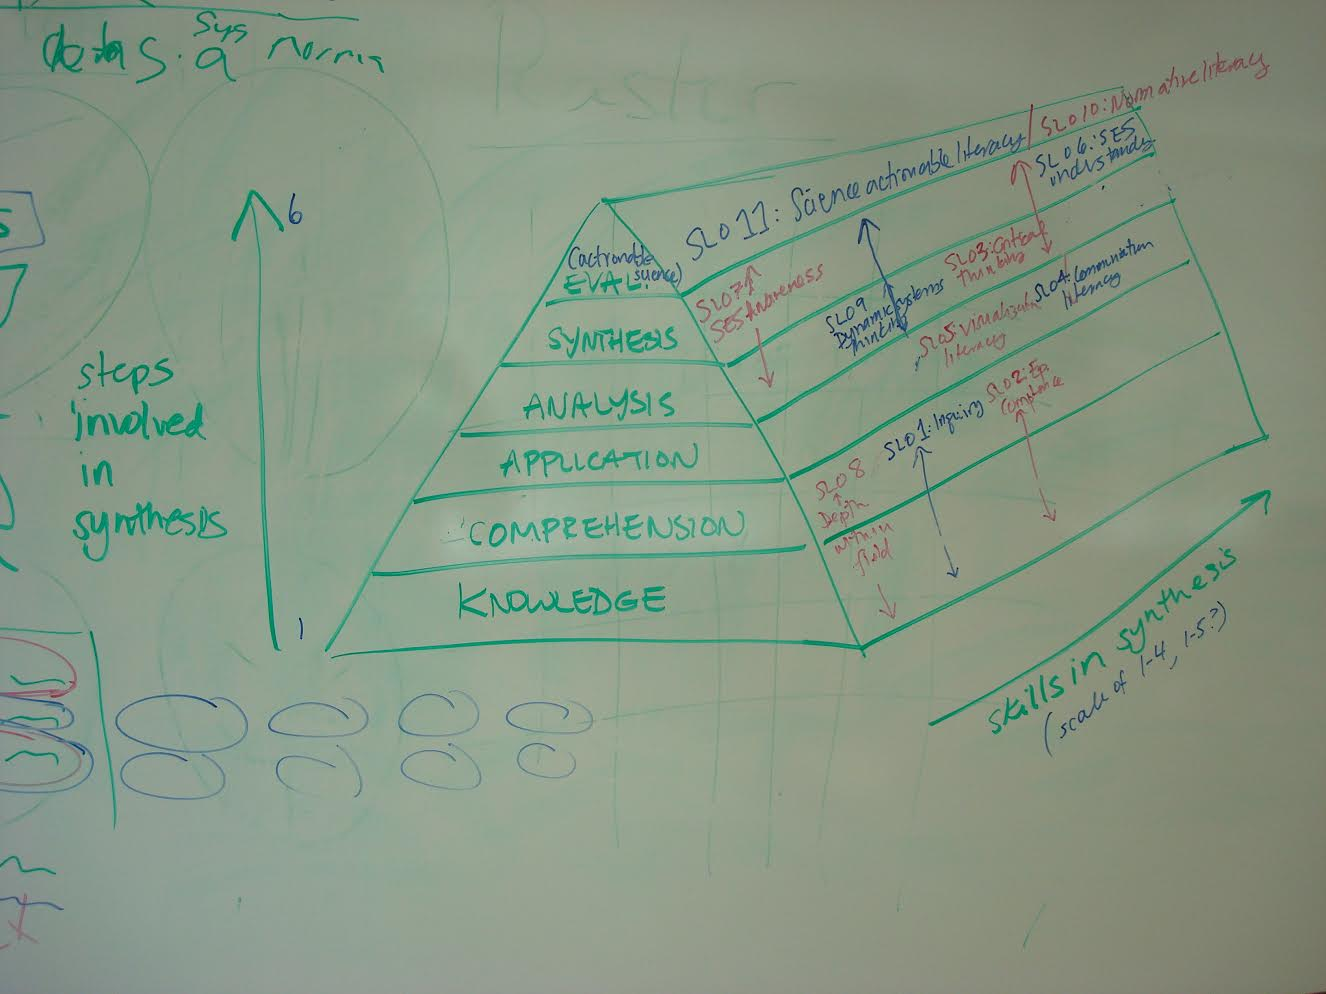 data S. a norma
Sys
Raster
6
steps
involved
in
synthesis
1
(actionable
science)
EVAL
SYNTHESIS
ANALYSIS
APPLICATION
COMPREHENSION
KNOWLEDGE
SLO 11: Science actionable literacy / SLO 10: Normative literacy
SLO 6: SES
SLO 7
SES Awareness
SLO 9
Dynamic systems
thinking
SLO 3: Critical
thinking
SLO 4: Communication
literacy
SLO 5: Visualization
literacy
SLO 8
Depth
within
field
SLO 1: Inquiry
SLO 2: Ep.
skills in synthesis
(scale of 1-4, 1-5?)
S